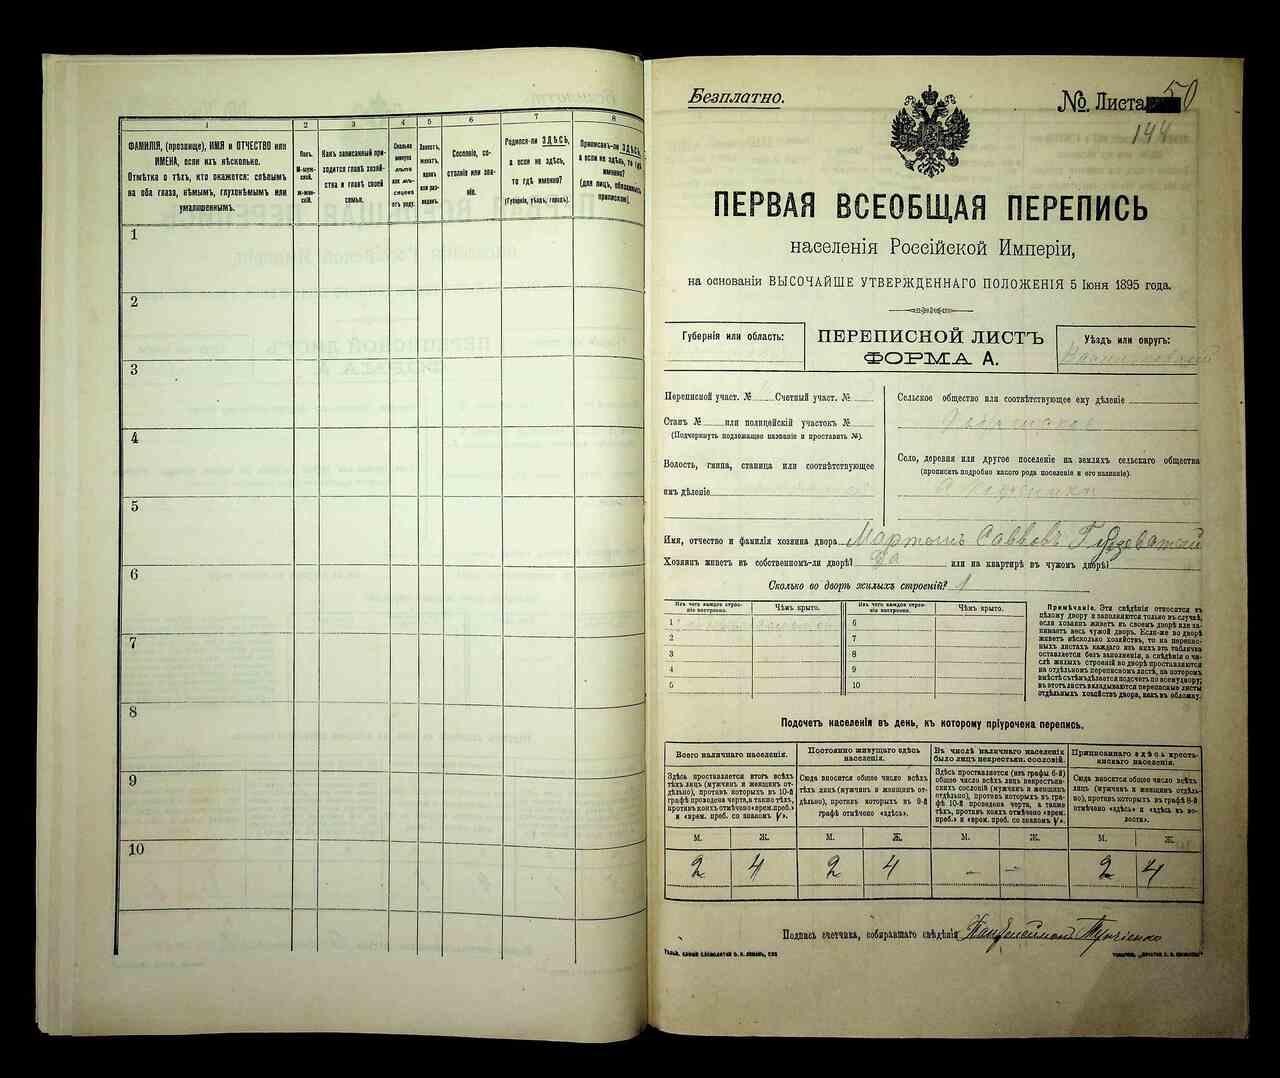 1
2
3
4
5
6
7
8
ФАМИЛІЯ, (прозвище), ИМЯ и ОТЧЕСТВО или
ИМЕНА, если ихъ нѣсколько.
Отмѣтка о тѣхъ, кто окажется: слѣпымъ
на оба глаза, нѣмымъ, глухонѣмымъ или
умалишеннымъ.
Полъ.
М-муж-
ской.
ж-жен-
скій.
Какъ записанный при-
ходится главѣ хозяй-
ства и главѣ своей
семьи.
Сколько
минуло
лѣтъ
или мѣ-
сяцевъ
отъ роду.
Холостъ,
женатъ,
вдовъ
или раз-
веденъ.
Сословіе, со-
стояніе или зва-
ніе.
Родился-ли ЗДѢСЬ,
а если не здѣсь,
то гдѣ именно?
(Губернія, уѣздъ, городъ).
Приписанъ-ли ЗДѢСЬ,
а если не здѣсь, то гдѣ
именно?
(для лицъ, обязанныхъ
припискою).
1
2
3
4
5
6
7
8
9
10
Безплатно.
№ Листа 50
144
ПЕРВАЯ ВСЕОБЩАЯ ПЕРЕПИСЬ
населенія Россійской Имперіи,
на основаніи ВЫСОЧАЙШЕ УТВЕРЖДЕННАГО ПОЛОЖЕНІЯ 5 Іюня 1895 года.
Губернія или область:
ПЕРЕПИСНОЙ ЛИСТЪ
ФОРМА А.
Уѣздъ или округъ:
Переписной участ. № Счетный участ. №
Станъ № или полицейскій участокъ №
(Подчеркнуть подлежащее названіе и проставить №).
Волость, гмина, станица или соотвѣтствующее
имъ дѣленіе
Сельское общество или соотвѣтствующее ему дѣленіе
Село, деревня или другое поселеніе на земляхъ сельскаго общества
(прописать подробно какого рода поселеніе и его названіе).
Имя, отчество и фамилія хозяина двора Мартынъ Саввовъ
Хозяинъ живетъ въ собственномъ-ли дворѣ? Да или на квартирѣ въ чужомъ дворѣ?
Сколько во дворѣ жилыхъ строеній? 1
Изъ чего каждое строе-
ніе построено.
Чѣмъ крыто.
Изъ чего каждое строе-
ніе построено.
Чѣмъ крыто.
1
2
3
4
5
6
7
8
9
10
Примѣчаніе. Эти свѣдѣнія относятся къ
цѣлому двору и заполняются только въ случаѣ,
если хозяинъ живетъ въ своемъ дворѣ или за-
нимаетъ весь чужой дворъ. Если-же во дворѣ
живетъ нѣсколько хозяйствъ, то на перепис-
ныхъ листахъ каждаго изъ нихъ эта табличка
оставляется безъ заполненія, а свѣдѣнія о чи-
слѣ жилыхъ строеній во дворѣ проставляются
на отдѣльномъ переписномъ листѣ, на которомъ
вмѣстѣ съ тѣмъ дѣлается подсчетъ по всему двору;
въ этотъ листъ вкладываются переписные листы
отдѣльныхъ хозяйствъ двора, какъ въ обложку.
Подсчетъ населенія въ день, къ которому пріурочена перепись.
Всего наличнаго населенія.
Здѣсь проставляется итогъ всѣхъ
тѣхъ лицъ (мужчинъ и женщинъ от-
дѣльно), противъ которыхъ въ 10-й
графѣ проведена черта, а также тѣхъ,
противъ коихъ отмѣчено «врем. преб.»
и «врем. преб. со знакомъ V».
Постоянно живущаго здѣсь
населенія.
Сюда вносится общее число всѣхъ
тѣхъ лицъ (мужчинъ и женщинъ от-
дѣльно), противъ которыхъ въ 9-й
графѣ отмѣчено «здѣсь».
Въ числѣ наличнаго населенія
было лицъ некрестьян. сословій.
Здѣсь проставляется (изъ графы 6-й)
общее число всѣхъ лицъ некрестьян-
скихъ сословій (мужчинъ и женщинъ
отдѣльно), противъ которыхъ въ гра-
фѣ 10-й проведена черта, а также
тѣхъ, противъ коихъ отмѣчено «врем.
преб.» и «врем. преб. со знакомъ V».
Приписаннаго здѣсь кресть-
янскаго населенія.
Сюда вносится общее число всѣхъ
лицъ (мужчинъ и женщинъ отдѣль-
но), противъ которыхъ въ графѣ 8-й
отмѣчено «здѣсь» и «здѣсь въ во-
лости».
М. Ж. М. Ж. М. Ж. М. Ж.
2 4 2 4 – – 2 4
Подпись счетчика, собиравшаго свѣдѣнія